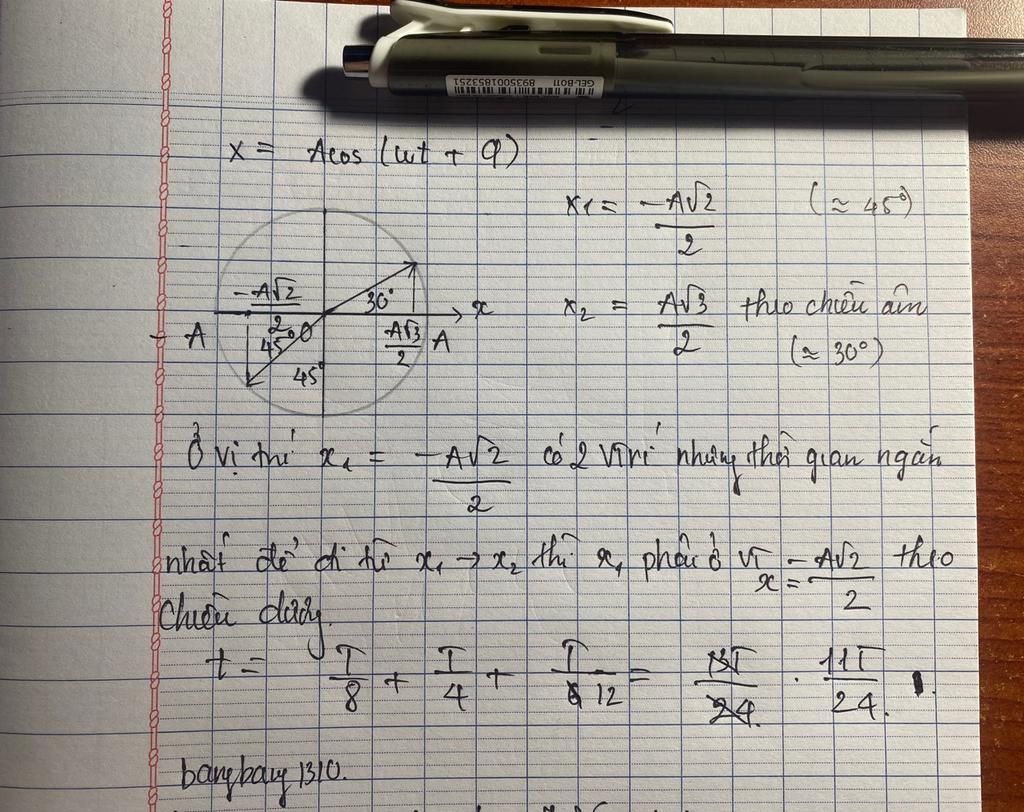 GEL-B011 8935001853251
x = Acos (ωt + φ)
x1 = -A√2/2 (≈ 45°)
-A√2/2 30° x
x2 = A√3/2 theo chiều âm
-A 45° O A√3/2 A
(≈ 30°)
45°
Ở vị trí x1 = -A√2/2 có 2 vị trí nhưng thời gian ngắn
nhất để đi từ x1 → x2 thì x1 phải ở vị x = -A√2/2 theo
chiều dương.
t = T/8 + T/4 + T/12 = 11T/24.
bangbang1310.